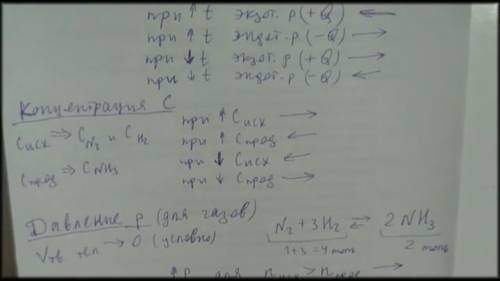 при ↑ t экзот. р (+Q) ←
при ↑ t эндот. р (-Q) →
при ↓ t экзот. р (+Q) →
при ↓ t эндот. р (-Q) ←
Концентрация С
при ↑ Cисх →
Cисх ⇒ C_N₂ и C_H₂
при ↑ Cпрод ←
при ↓ Cисх ←
Cпрод ⇒ C_NH₃
при ↓ Cпрод →
Давление р (для газов)
Vтв тел → 0 (условно)
N₂ + 3H₂ ⇄ 2NH₃
1+3=4 моль 2 моль
↑ р для nисх > nпрод →